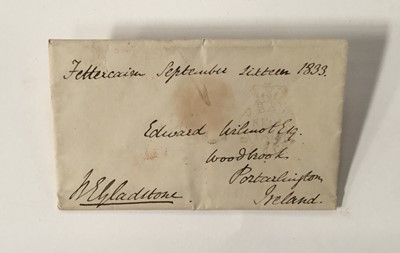 Fettercairn September sixteen 1833.
Edward Wilmot Esq.
Woodbrook
Portarlington
Ireland.
WEGladstone.